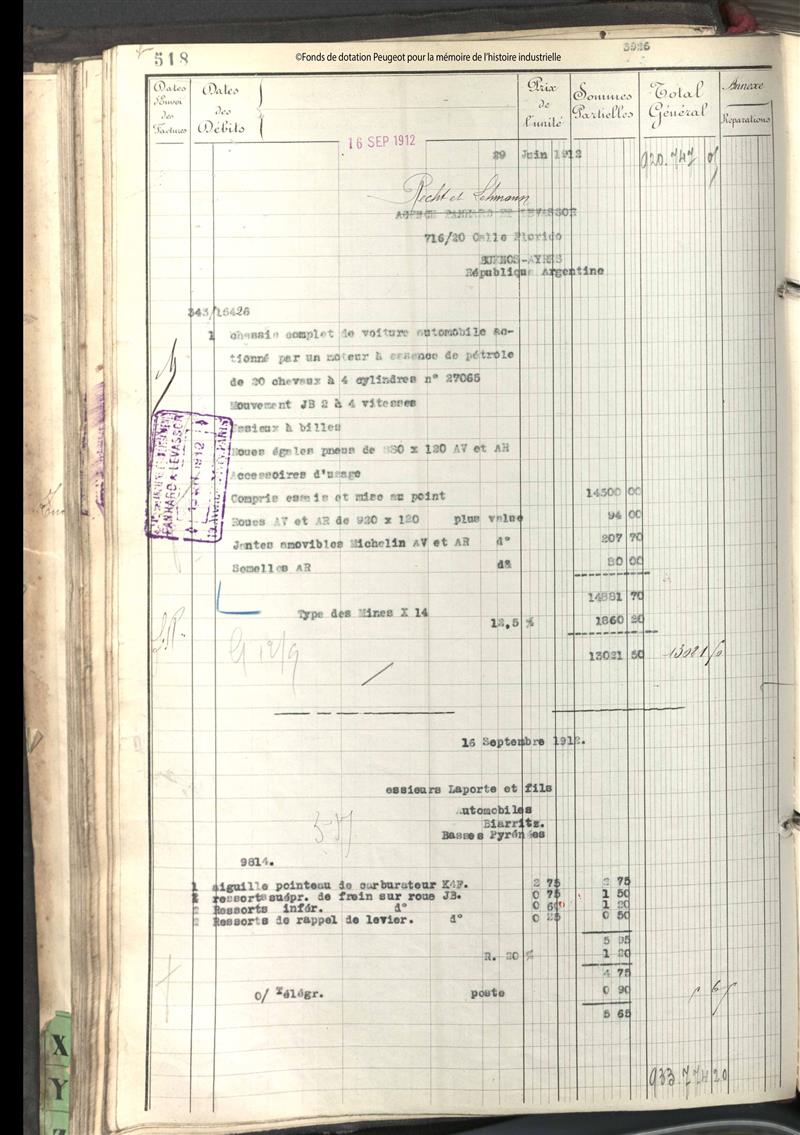 518
©Fonds de dotation Peugeot pour la mémoire de l'histoire industrielle
3926
Dates d'Envoi des Factures
Dates des Débits
Prix de l'unité
Sommes Partielles
Total Général
Annexe
Réparations
16 SEP 1912
29 Juin 1912
920.747
Recht et Lehmann
AGENCE PANHARD ET LEVASSOR
716/20 Calle Florido
BUENOS-AYRES
République Argentine
343/16426
1 chassis complet de voiture automobile ac-
tionné par un moteur à essence de pétrole
de 20 chevaux à 4 cylindres n° 27065
Mouvement JB 2 à 4 vitesses
Essieux à billes
Roues égales pneus de 880 x 120 AV et AR
Accessoires d'usage
Compris essais et mise au point 14500 00
Roues AV et AR de 920 x 120 plus value 94 00
Jantes amovibles Michelin AV et AR d° 207 70
Semelles AR d& 80 00
14881 70
Type des Mines X 14
12,5 % 1860 20
13021 50 13021
PANHARD & LEVASSOR
16 Septembre 1912.
essieurs Laporte et fils
Automobiles
Biarritz.
Basses Pyrénées
9814.
1 aiguille pointeau de carburateur K4F. 2 75 2 75
ressorts supér. de frein sur roue JB. 0 75 1 50
2 Ressorts infér. d° 0 60 1 20
2 Ressorts de rappel de levier. d° 0 25 0 50
5 95
R. 20 % 1 20
4 75
o/ Télégr. poste 0 90
5 65
933.774 20
X
Y
Z